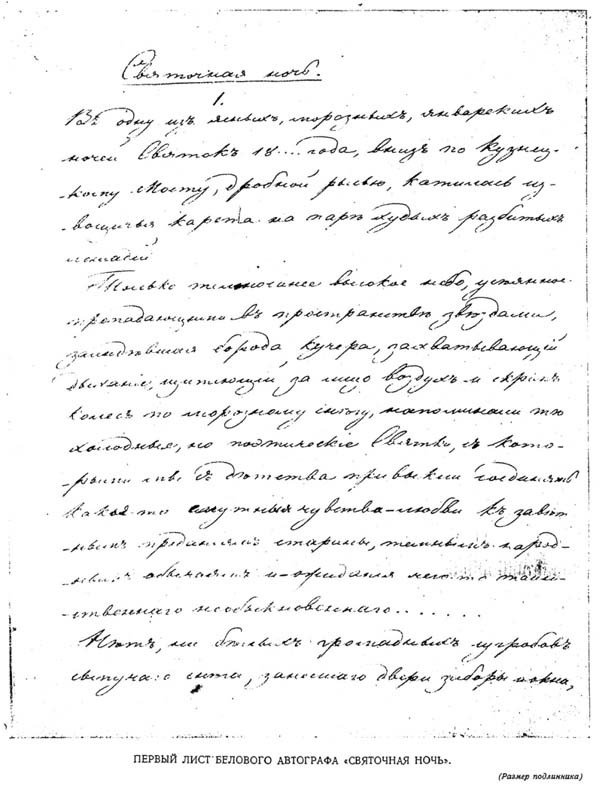 Святочная ночь.
1.
Въ одну изъ ясныхъ, морозныхъ, январскихъ
ночей Святокъ 18.... года, внизъ по Кузнец-
-кому мосту, дробной рысью, катилась из-
-вощичья карета на паръ худыхъ разбитыхъ
лошадей
Только темносинее высокое небо, усѣянное
пропадающими въ пространствѣ звѣздами,
заиндѣвшая борода кучера, захватывающій
дыханіе, щиплющій за лицо воздухъ и скрипъ
колесъ по морозному снѣгу, напоминали тѣ
холодныя, но поэтическіе Святки, съ кото-
-рыми мы съ дѣтства привыкли соединять
какія то смутныя чувства-любви къ завѣт-
-нымъ преданіямъ старины, темнымъ народ-
-нымъ обычаямъ и-ожиданія чего то таин-
-ственнаго необыкновеннаго.......
Нѣтъ, ни бѣлыхъ громадныхъ сугробовъ
сыпучаго снѣга, занесшаго двери заборы и окна,
ПЕРВЫЙ ЛИСТ БЕЛОВОГО АВТОГРАФА «СВЯТОЧНАЯ НОЧЬ».
(Размер подлинника)